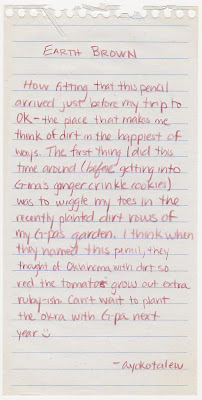 EARTH BROWN
How fitting that this pencil
arrived just before my trip to
OK - the place that makes me
think of dirt in the happiest of
ways. The first thing I did this
time around (before getting into
G-ma's ginger crinkle cookies)
was to wiggle my toes in the
recently planted dirt rows of
my G-pa's garden. I think when
they named this pencil, they
thought of Oklahoma, with dirt so
red the tomatos grow out extra
ruby-ish. Can't wait to plant
the okra with G-pa next
year. :)
- ayokotalew